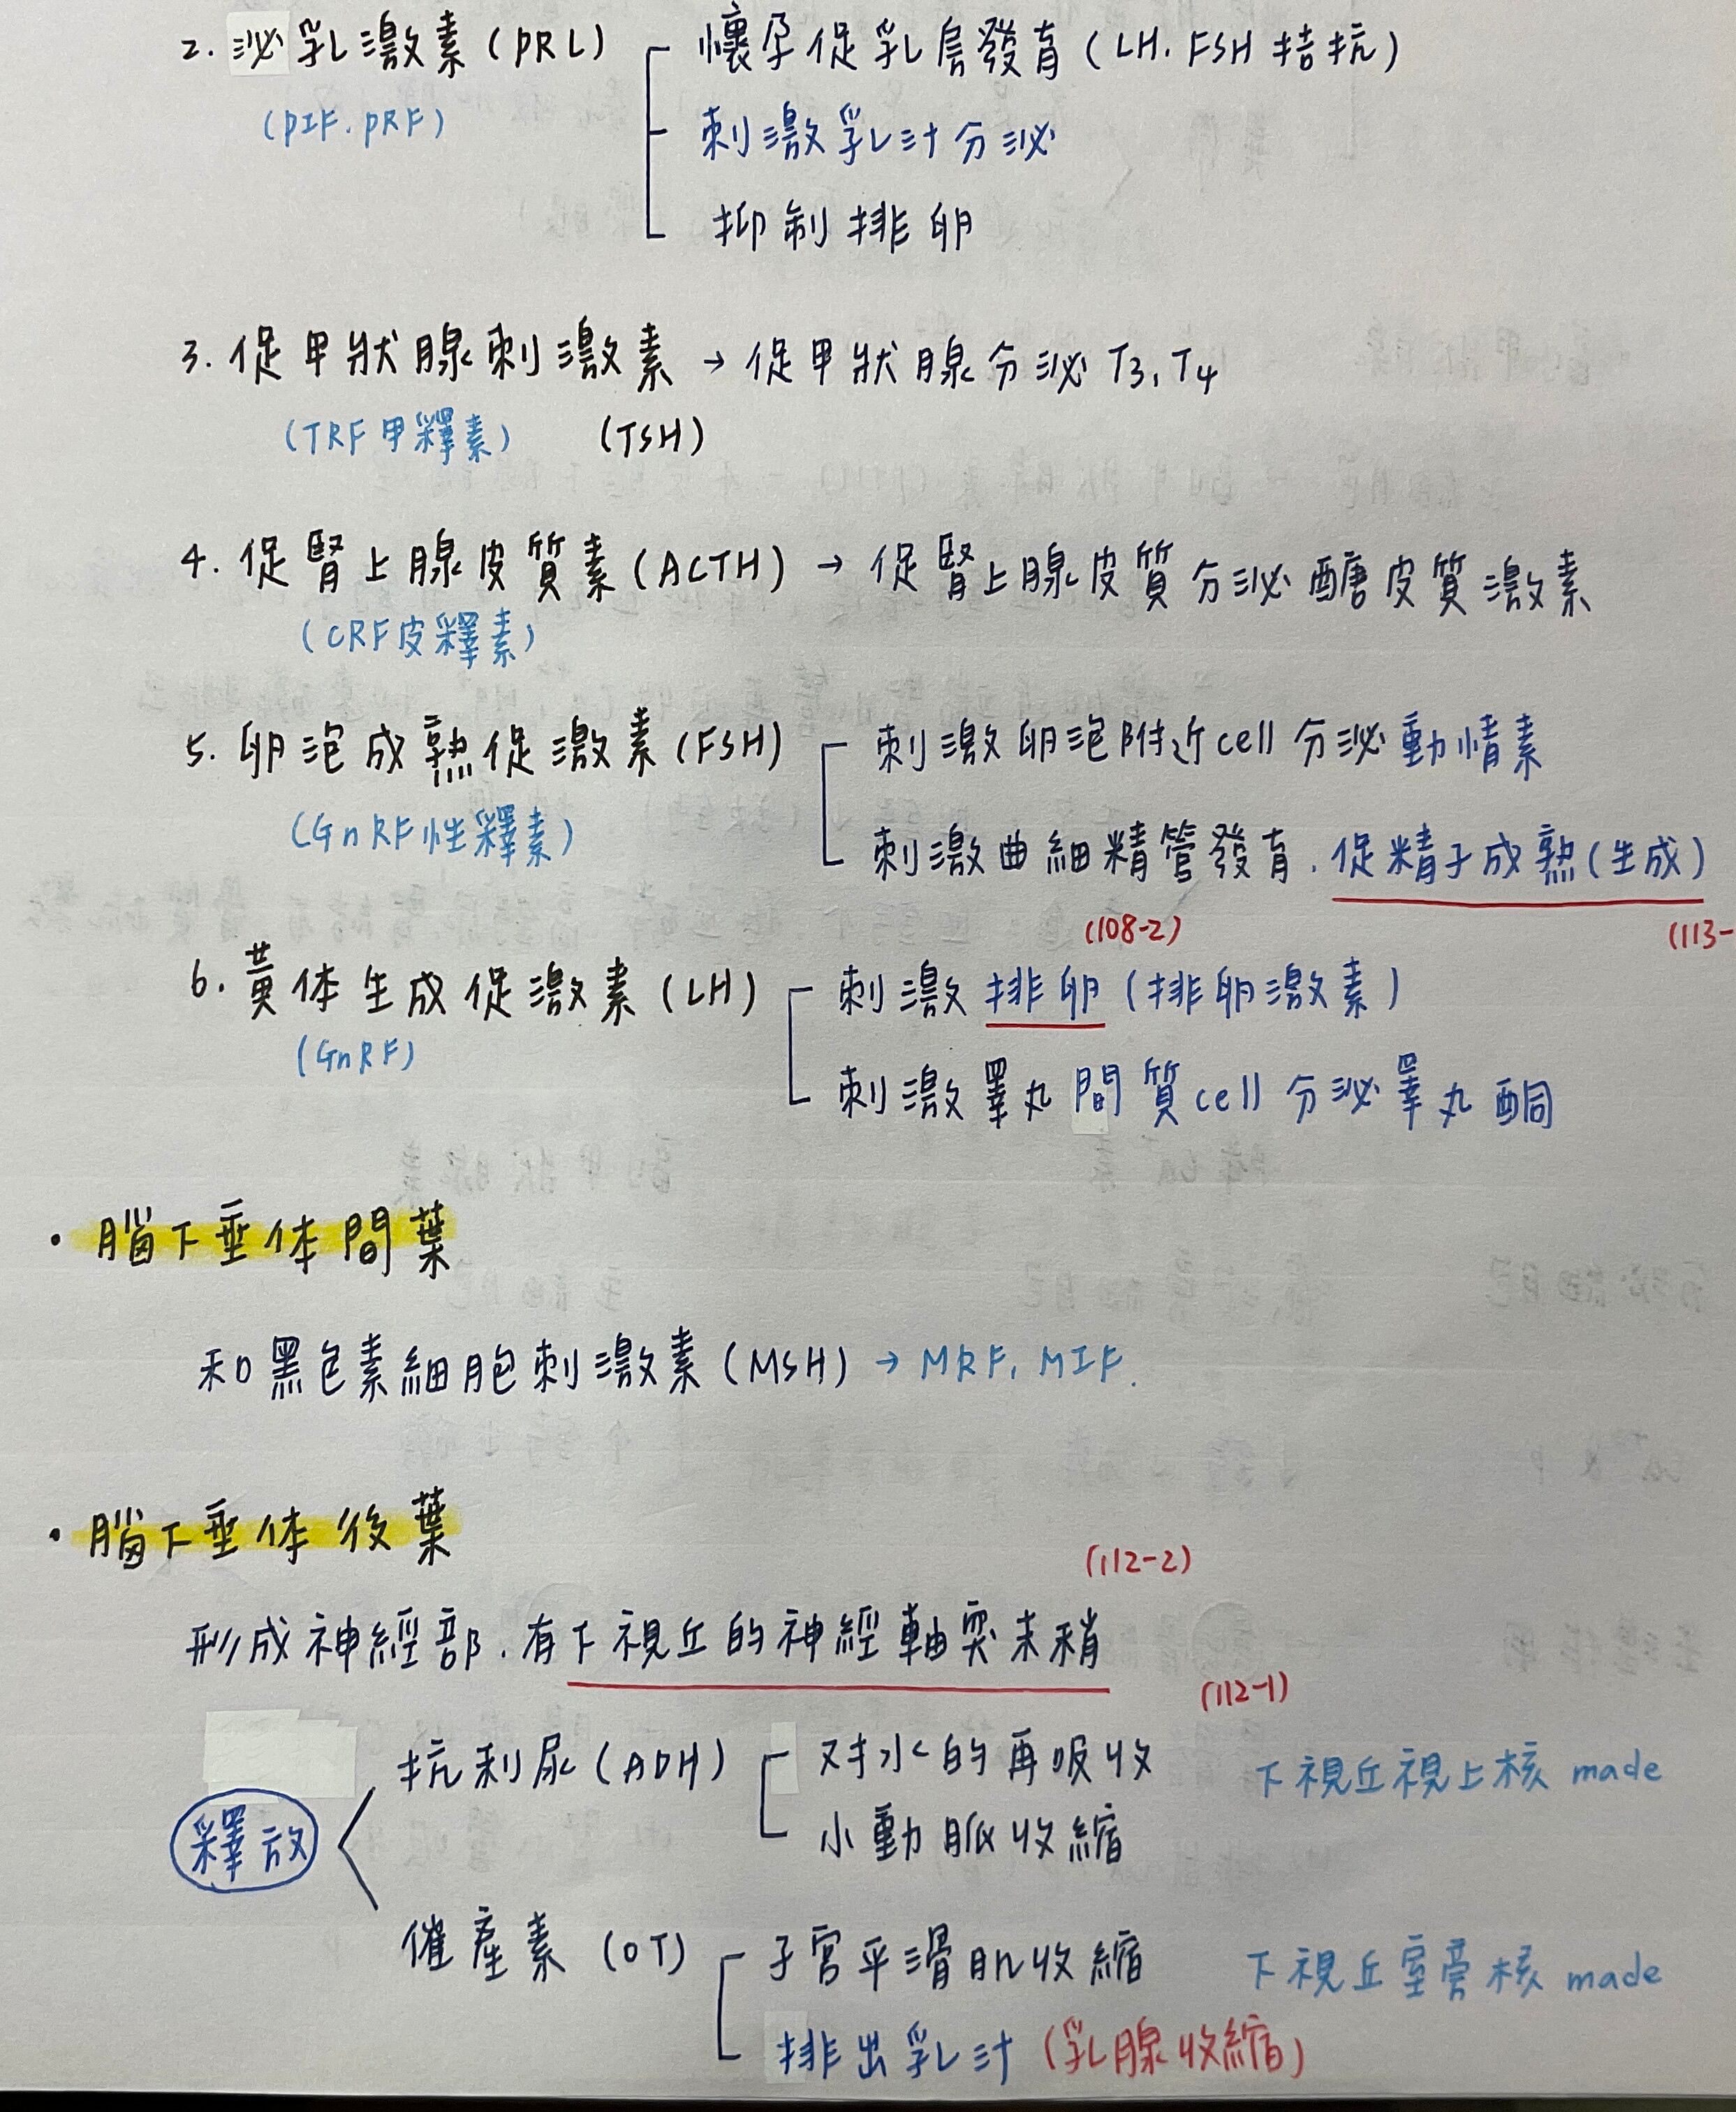 2. 泌乳激素(PRL) 懷孕促乳房發育(LH. FSH 拮抗)
(PIF. PRF) 刺激乳汁分泌
抑制排卵
3. 促甲狀腺刺激素 → 促甲狀腺分泌 T3, T4
(TRF甲釋素) (TSH)
4. 促腎上腺皮質素(ACTH) → 促腎上腺皮質分泌醣皮質激素
(CRF皮釋素)
5. 卵泡成熟促激素(FSH) 刺激卵泡附近cell 分泌動情素
(GnRF性釋素) 刺激曲細精管發育. 促精子成熟(生成)
(108-2) (113-
6. 黃体生成促激素(LH) 刺激排卵(排卵激素)
(GnRF)
刺激睪丸間質cell 分泌睪丸酮
· 腦下垂体間葉
和黑色素細胞刺激素(MSH) → MRF, MIF.
· 腦下垂体後葉
(112-2)
形成神經部. 有下視丘的神經軸突末稍
(112-1)
抗利尿(ADH) 对水的再吸收 下視丘視上核 made
釋放 小動脈收縮
催產素(OT) 子宮平滑肌收縮 下視丘室旁核 made
排出乳汁(乳腺收縮)